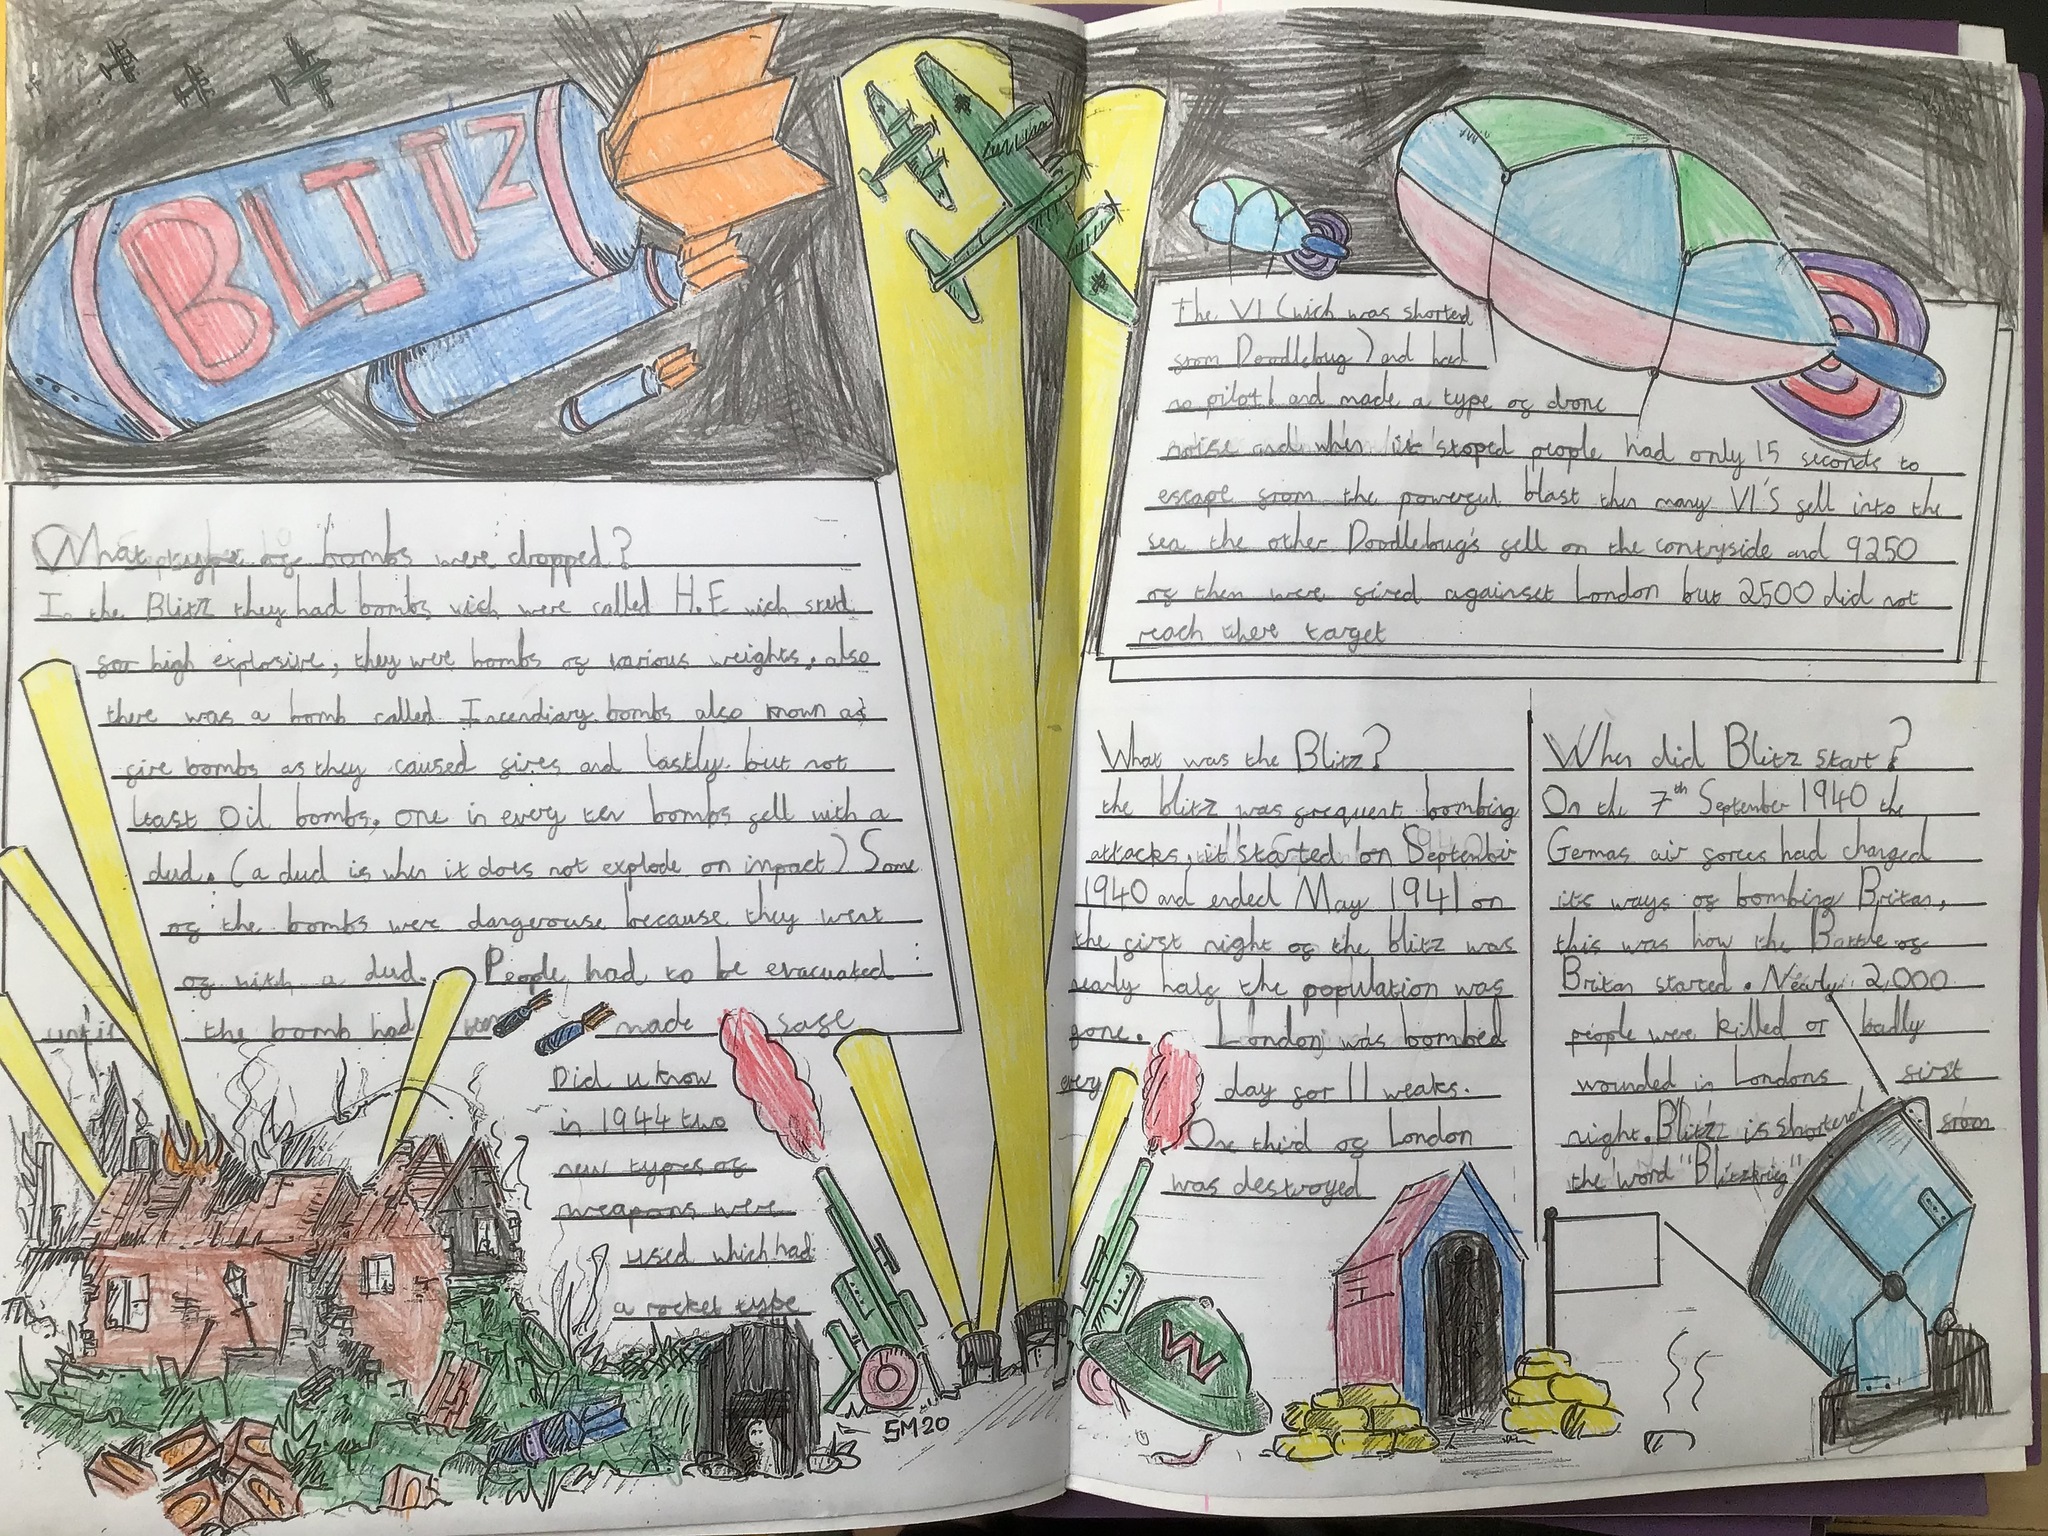 BLITZ
What type of bombs were dropped?
In the Blitz they had bombs wich were called H.E wich
for high explosive, they were bombs of various weights, also
there was a bomb called Incendiary bombs also known as
fire bombs as they caused fires and lastly but not
least Oil bombs, one in every ten bombs fell with a
dud. (a dud is when it does not explode on impact) Some
of the bombs were dangerouse because they went
of with a dud. People had to be evacuated
until the bomb had been made safe
Did u know
in 1944 two
new types of
weapons were
used which had
a rocket type
SM20
The V1 (wich was shorted
from Doodlebug) and had
no pilot! and made a type of drone
noise and when it stoped people had only 15 seconds to
escape from the powerful blast then many V1'S fell into the
sea the other Doodlebug's fell on the contryside and 9250
of them were fired againset London but 2500 did not
reach there target
What was the Blitz?
the blitz was frequent bombing
attacks, it started on September
1940 and ended May 1941 on
the first night of the blitz was
nearly half the population was
gone. London was bombed
every day for 11 weaks.
One third of London
was destroyed
W
When did Blitz start?
On the 7th September 1940 the
German air forces had changed
its ways of bombing Britan,
this was how the Battle of
Britan started. Nearly 2,000
people were killed or badly
wounded in Londons first
night. Blitz is shortend from
the word "Blitzkrieg"